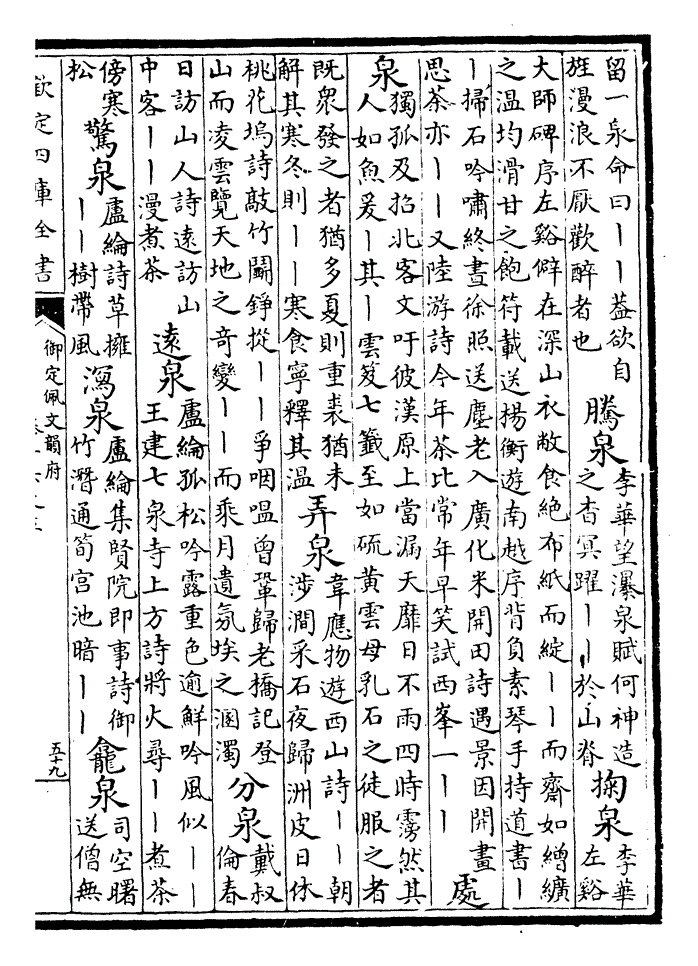 留一泉命曰丨丨葢欲自
旌漫浪不厭歡醉者也
騰泉
李華望瀑泉賦何神造
之杳冥躍丨丨於山脊
掬泉
李華
左谿
大師碑序左谿僻在深山衣敝食絶布紙而綻丨丨而齋如繒纊
之温均滑甘之飽符載送楊衡遊南越序背負素琴手持道書丨
丨掃石吟嘯終晝徐照送塵老入廣化米開田詩遇景因開畫
思茶亦丨丨又陸游詩今年茶比常年早笑試西峯一丨丨
處
泉
獨孤及招北客文吁彼漢原上當漏天靡日不雨四時霶然其
人如魚爰丨其丨雲笈七籤至如硫黄雲母乳石之徒服之者
既衆發之者猶多夏則重裘猶未
解其寒冬則丨丨寒食寧釋其温
弄泉
韋應物遊西山詩丨丨朝
涉澗采石夜歸洲皮日休
桃花塢詩敲竹鬭錚摐丨丨爭咽嗢曾鞏歸老橋記登
山而凌雲覽天地之奇變丨丨而乘月遺氛埃之溷濁
分泉
戴叔
倫春
日訪山人詩遠訪山
中客丨丨漫煮茶
遠泉
盧綸孤松吟露重色逾鮮吟風似丨丨
王建七泉寺上方詩將火尋丨丨煮茶
傍寒
松
驚泉
盧綸詩草擁
丨丨樹帶風
瀉泉
盧綸集賢院即事詩御
竹潛通筍宫池暗丨丨
龕泉
司空曙
送僧無
欽定四庫全書
御定佩文韻府
五十九